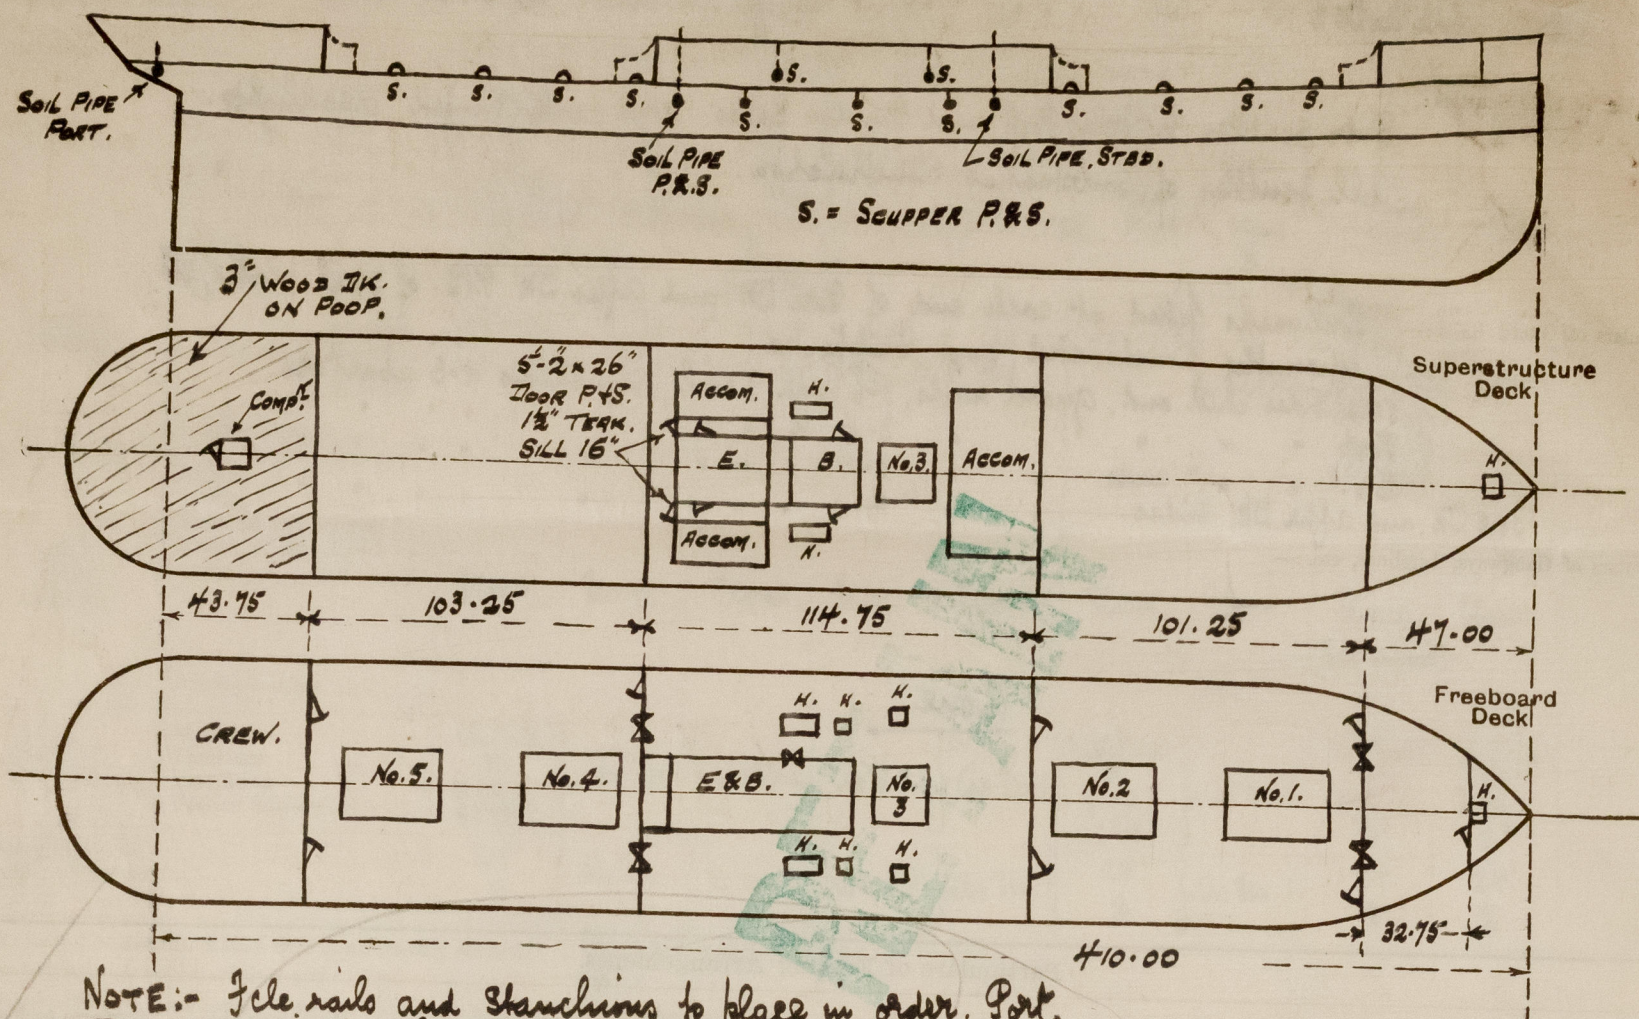 S. S.
SOIL PIPE
PORT.
S. S. S. S. S. S. S. S. S. S. S.
SOIL PIPE
P.&.S.
SOIL PIPE, STBD.
S. = SCUPPER P.&S.
3" WOOD DK.
ON POOP.
COMPT
5'-2" x 26"
DOOR P.+S.
1½" TEAK.
SILL 16"
ACCOM.
H.
E.
B.
No.3
ACCOM.
ACCOM.
H.
Superstructure
Deck
H.
43.75 103.25 114.75 101.25 47.00
Freeboard
Deck
CREW.
H. H. H.
No.5. No.4. E&B. No.
3
No.2 No.1. H.
H. H. H.
32.75
410.00
NOTE:- Fcle rails and Stanchions to place in order. Port.